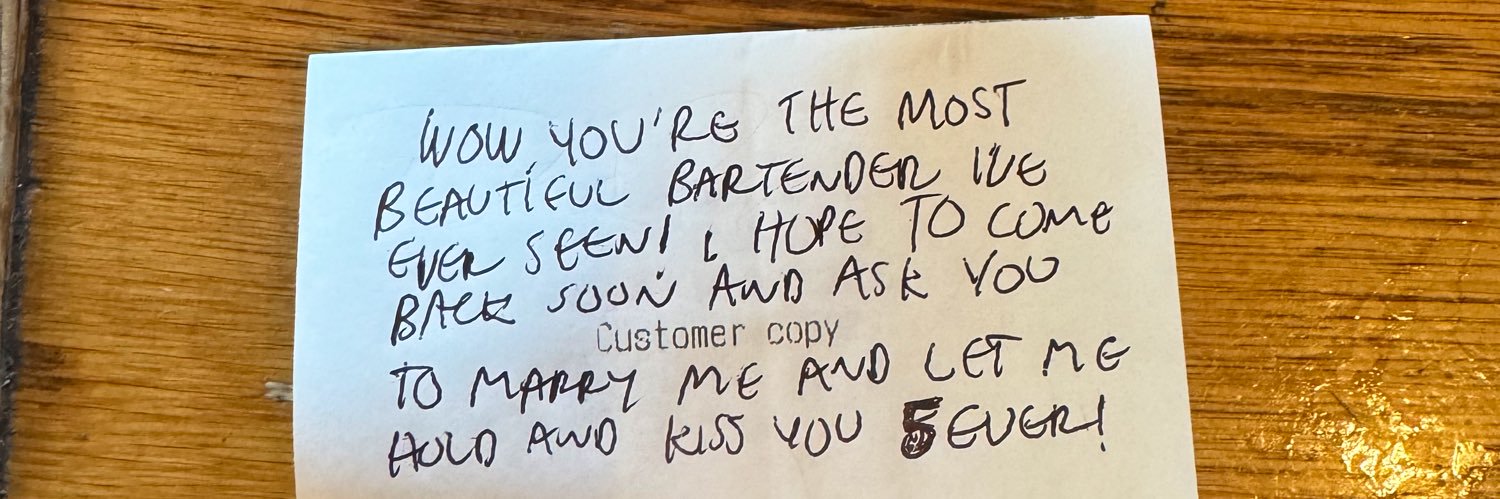 WOW, YOU'RE THE MOST
BEAUTIFUL BARTENDER I'VE
EVER SEEN! I HOPE TO COME
BACK SOON AND ASK YOU
Customer copy
TO MARRY ME AND LET ME
HOLD AND KISS YOU 5EVER!